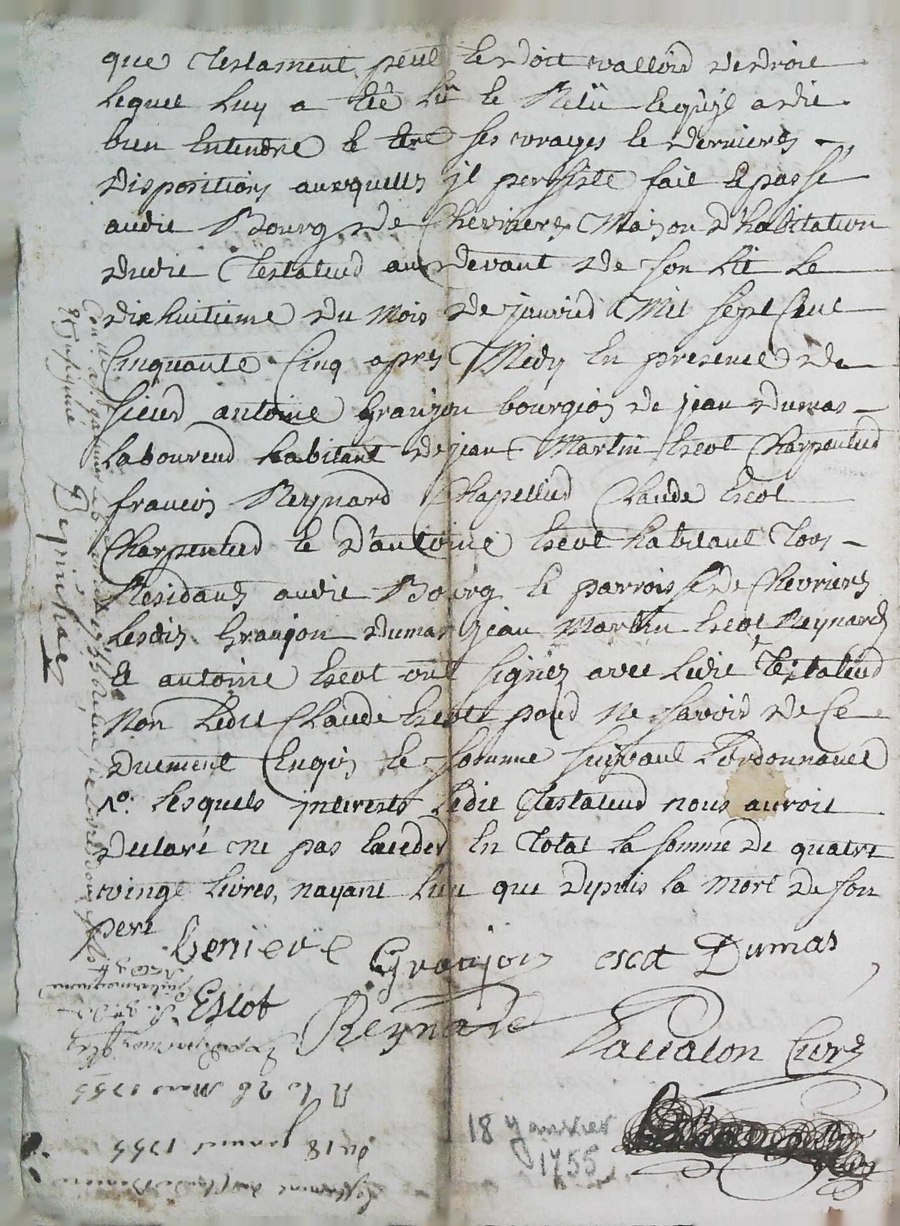 que Testament peut et doit valloir de droit
lequel luy a été lû et Relû et quil a dit
bien Entendre et être ses vrayes et dernieres
dispositions auxquelles jl persiste fait et passé
audit Bourg de Chevrieres Maison d'habitation
dudit Testateur au devant de son lit le
dixhuitieme du mois de janvier Mil sept Cent
Cinquante Cinq apres Midy En presence de
sieur antoine Granjon bourgeois de jean dumas
laboureur habitant de jean Martin Escot Charpentier
francois Reynard Chapellier Claude Escot
Charpentier et d'antoine Escot habitant Tous
Residants audit Bourg et parroisse de Chevrieres
Lesdits Granjon dumas jean Martin Escot Reynard
Et antoine Escot ont signez avec Ledit Testateur
Non Ledit Claude Escot pour ne savoir de Ce
duement Enquis et sommé suivant L'ordonnance
lesquels interests Ledit Testateur nous auroit
declaré ne pas Exceder En Total la somme de quatre
vingt Livres, nayant lieu que depuis la mort de son
pere
Granjon escot Dumas
Escot Reynard
Curé
18 janvier
1755
A le 26 Mars 1755
du 18 janvier 1755